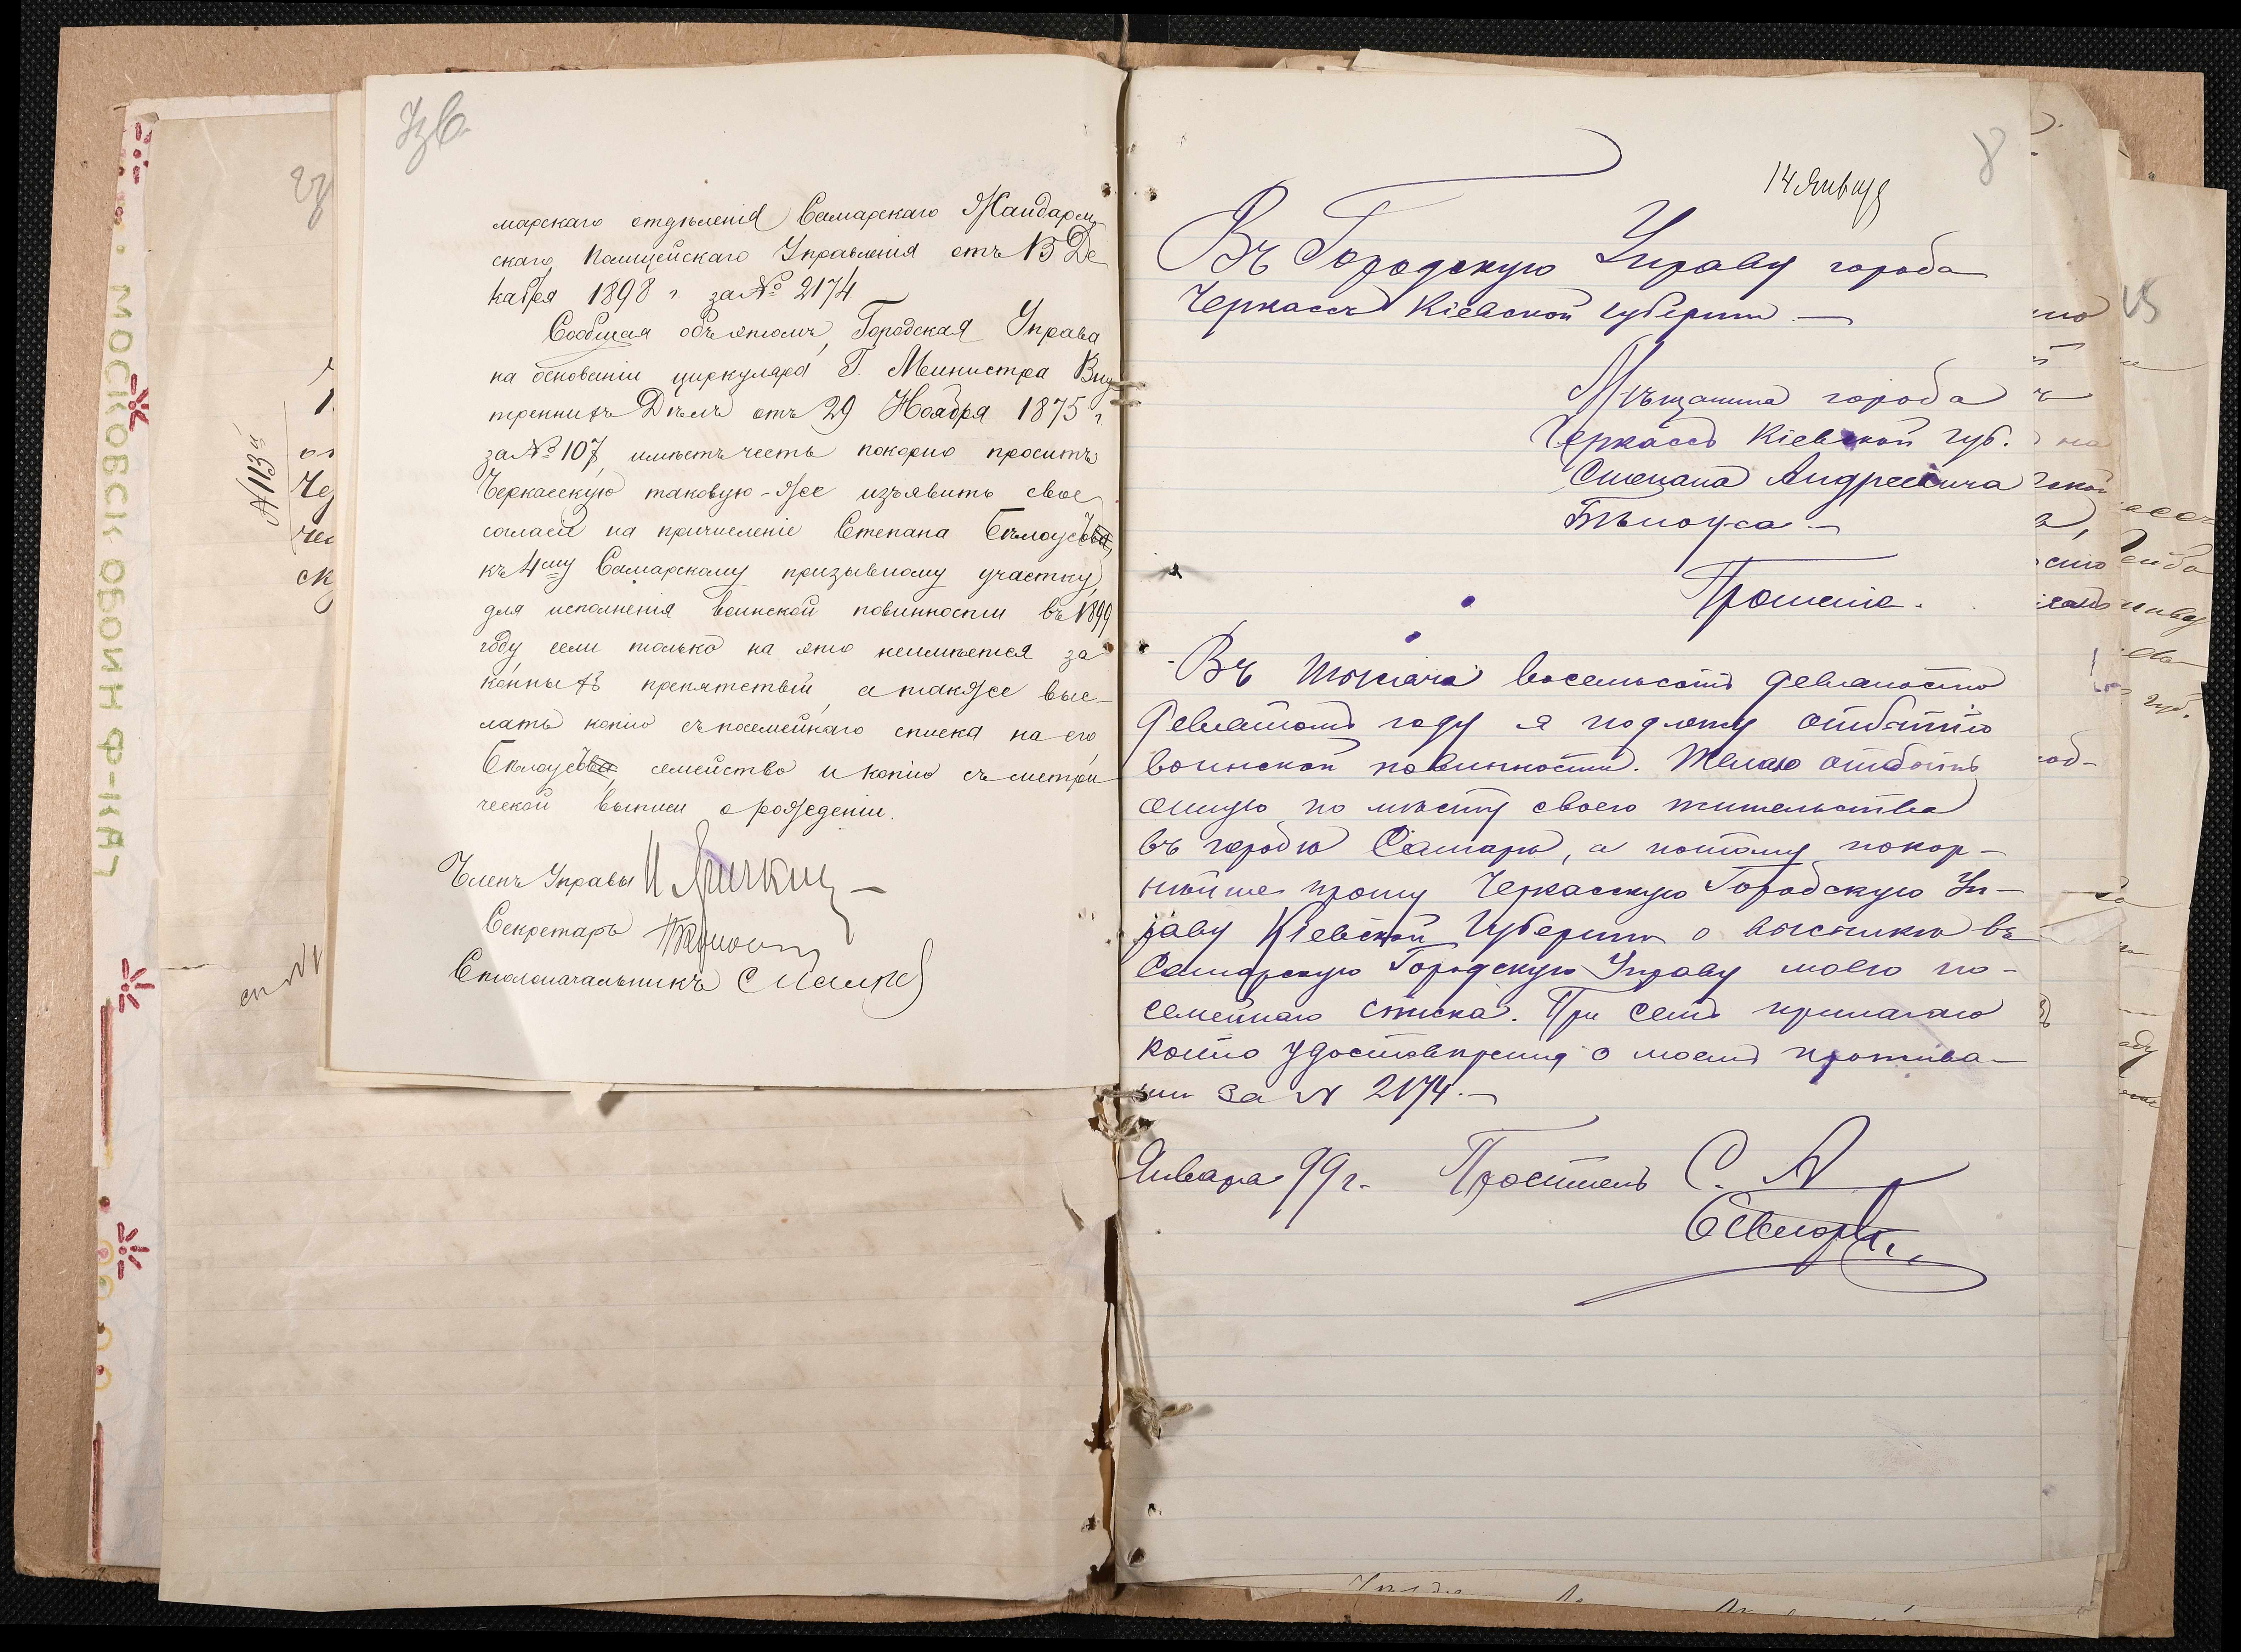 марскаго отдѣленія Самарскаго Жандарм
скаго Полицейскаго Управленія отъ 13 Де
кабря 1898 г. за № 2174
Сообщая объ этомъ, Городская Управа
на основаніи циркуляра Г. Министра Вну
треннихъ Дѣлъ отъ 29 Ноября 1875 г.
за № 107, имѣетъ честь покорно просить
Черкасскую таковую-же изъявить свое
согласіе на причисленіе Степана Бѣлоус
къ 4му Самарскому призывному участку,
для исполненія воинской повинности въ 1899
году если только на это неимѣется за
конныхъ препятствій, а также выс-
лать копію съ посемейнаго списка на его
Бѣлоус семейство и копію съ метри
ческой выписи о рожденіи.
Членъ Управы
Секретарь
Столоначальникъ
№ 113
14 Января
8
Въ Городскую Управу города
Черкассъ Кіевской губерніи —
Мѣщанина города
Черкассъ Кіевской губ.
Степана Андреевича
Бѣлоуса —
Прошеніе.
Въ тысяча восемьсотъ девяносто
девятомъ году я подлежу отбытію
воинской повинности. Желаю отбыть
оную по мѣсту своего жительства
въ городѣ Самарѣ, а потому покор-
нѣйше прошу Черкасскую Городскую Уп-
раву Кіевской Губерніи о высылкѣ въ
Самарскую Городскую Управу моего по-
семейнаго списка. При семъ прилагаю
копію удостовѣренія о моемъ прожива-
ніи за № 2174. —
Января 99 г. Проситель С. А.
15
МОСКОВСК ОБОИН Ф-ІКА